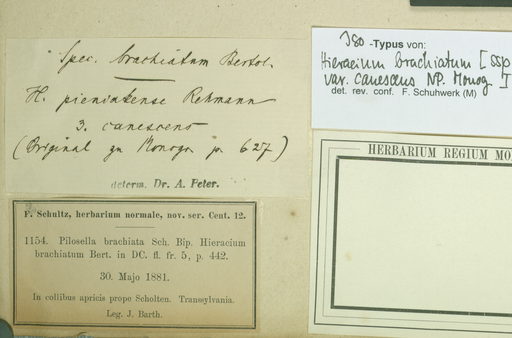 Spec. brachiatum Bertol.
H. pieninkense Rehmann
3. canescens
(Original zu Monogr. p. 627)
determ. Dr. A. Peter.
F. Schultz, herbarium normale, nov. ser. Cent. 12.
1154. Pilosella brachiata Sch. Bip. Hieracium
brachiatum Bert. in DC. fl. fr. 5, p. 442.
30. Majo 1881.
In collibus apricis prope Scholten. Transsylvania.
Leg. J. Barth.
Iso -Typus von:
Hieracium brachiatum [ssp
var. canescens NP. Monog ]
det. rev. conf. F. Schuhwerk (M)
HERBARIUM REGIUM MO